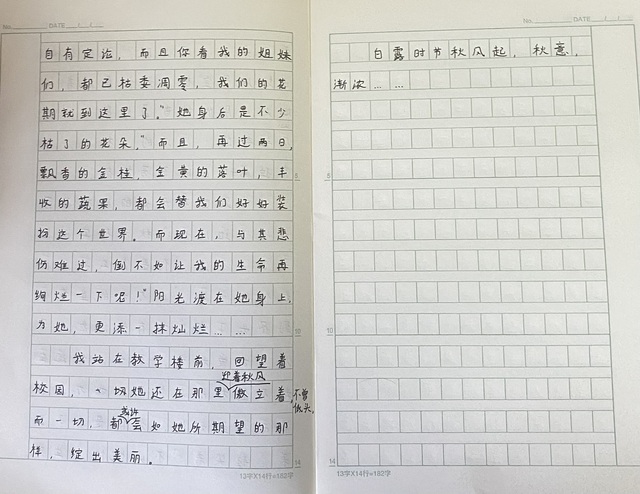 No. DATE / /
自有定论，而且你看我的姐妹
们，都已枯委凋零，我们的花
期就到这里了。”她身后是不少
枯了的花朵，“而且，再过两日，
飘香的金桂，金黄的落叶，丰
收的蔬果，都会替我们好好装
扮这个世界。而现在，与其悲
伤难过，倒不如让我的生命再
绚烂一下吧！”阳光渡在她身上，
为她，更添一抹灿烂……
我站在教学楼前，回望着
迎着秋风
校园，一切她还在那里傲立着，不曾低头。
或许
而一切，都会如她所期望的那
样，绽出美丽。
5
10
14
13字X14行=182字
No. DATE / /
白露时节秋风起，秋意，
渐浓……
5
10
14
13字X14行=182字